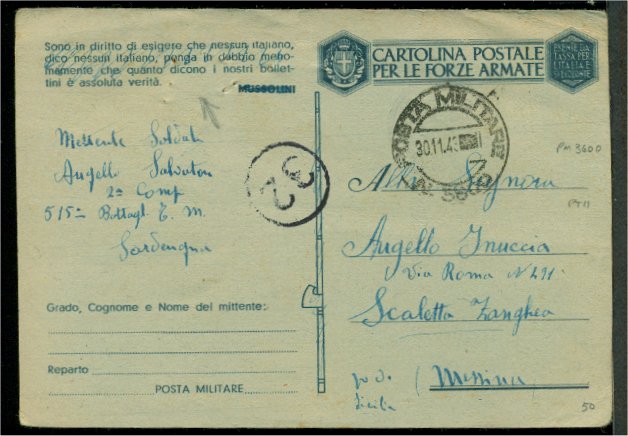 Sono in diritto di esigere che nessun italiano,
dico nessun italiano, ponga in dubbio meno-
mamente che quanto dicono i nostri bollet-
tini è assoluta verità.
MUSSOLINI
Mittente Soldato
Augello Salvatore
2a Comp
515º Battagl. T. M.
Sardengna
Grado, Cognome e Nome del mittente:
Reparto
POSTA MILITARE
32
CARTOLINA POSTALE
PER LE FORZE ARMATE
ESENTE DA
TASSA PER
L'ITALIA E
POSTA MILITARE
30.11.43
N. 3600
PM 3600
Alla Signora
PT 11
Augello Inuccia
Via Roma N 291
Scaletta Zanghea
(Messina)
Sicilia
50